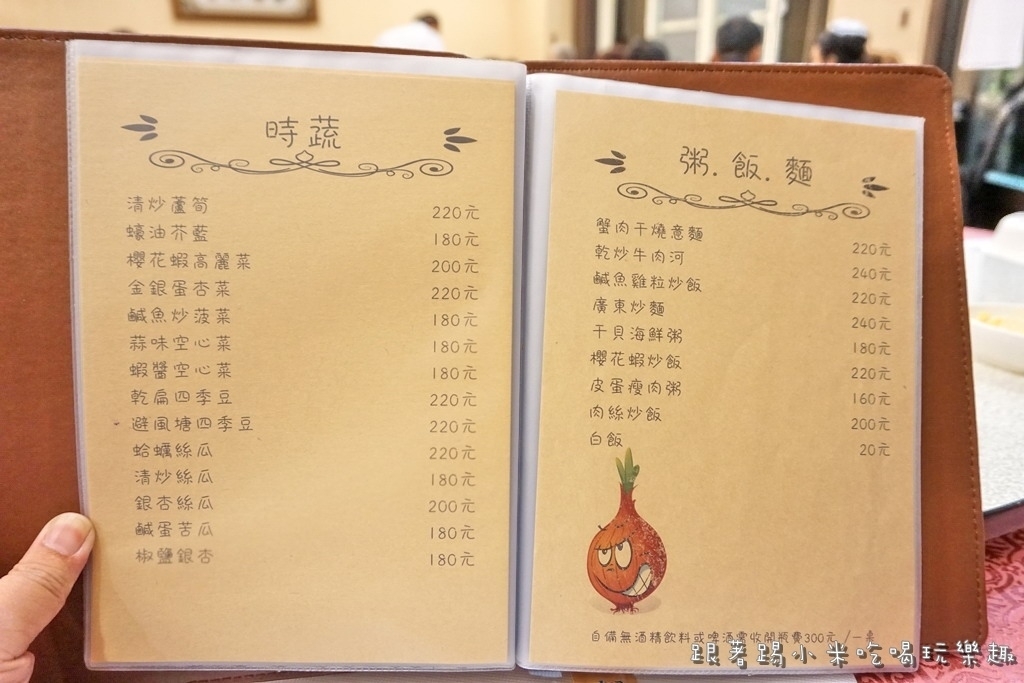 時蔬
清炒蘆筍 220元
蠔油芥藍 180元
櫻花蝦高麗菜 200元
金銀蛋杏菜 220元
鹹魚炒菠菜 180元
蒜味空心菜 180元
蝦醬空心菜 180元
乾扁四季豆 220元
避風塘四季豆 220元
蛤蠣絲瓜 220元
清炒絲瓜 180元
銀杏絲瓜 200元
鹹蛋苦瓜 180元
椒鹽銀杏 180元
粥.飯.麵
蟹肉干燒意麵 220元
乾炒牛肉河 240元
鹹魚雞粒炒飯 220元
廣東炒麵 240元
干貝海鮮粥 180元
櫻花蝦炒飯 220元
皮蛋瘦肉粥 160元
肉絲炒飯 200元
白飯 20元
自備無酒精飲料或啤酒需收開瓶費300元/一桌
跟著踢小米吃喝玩樂趣